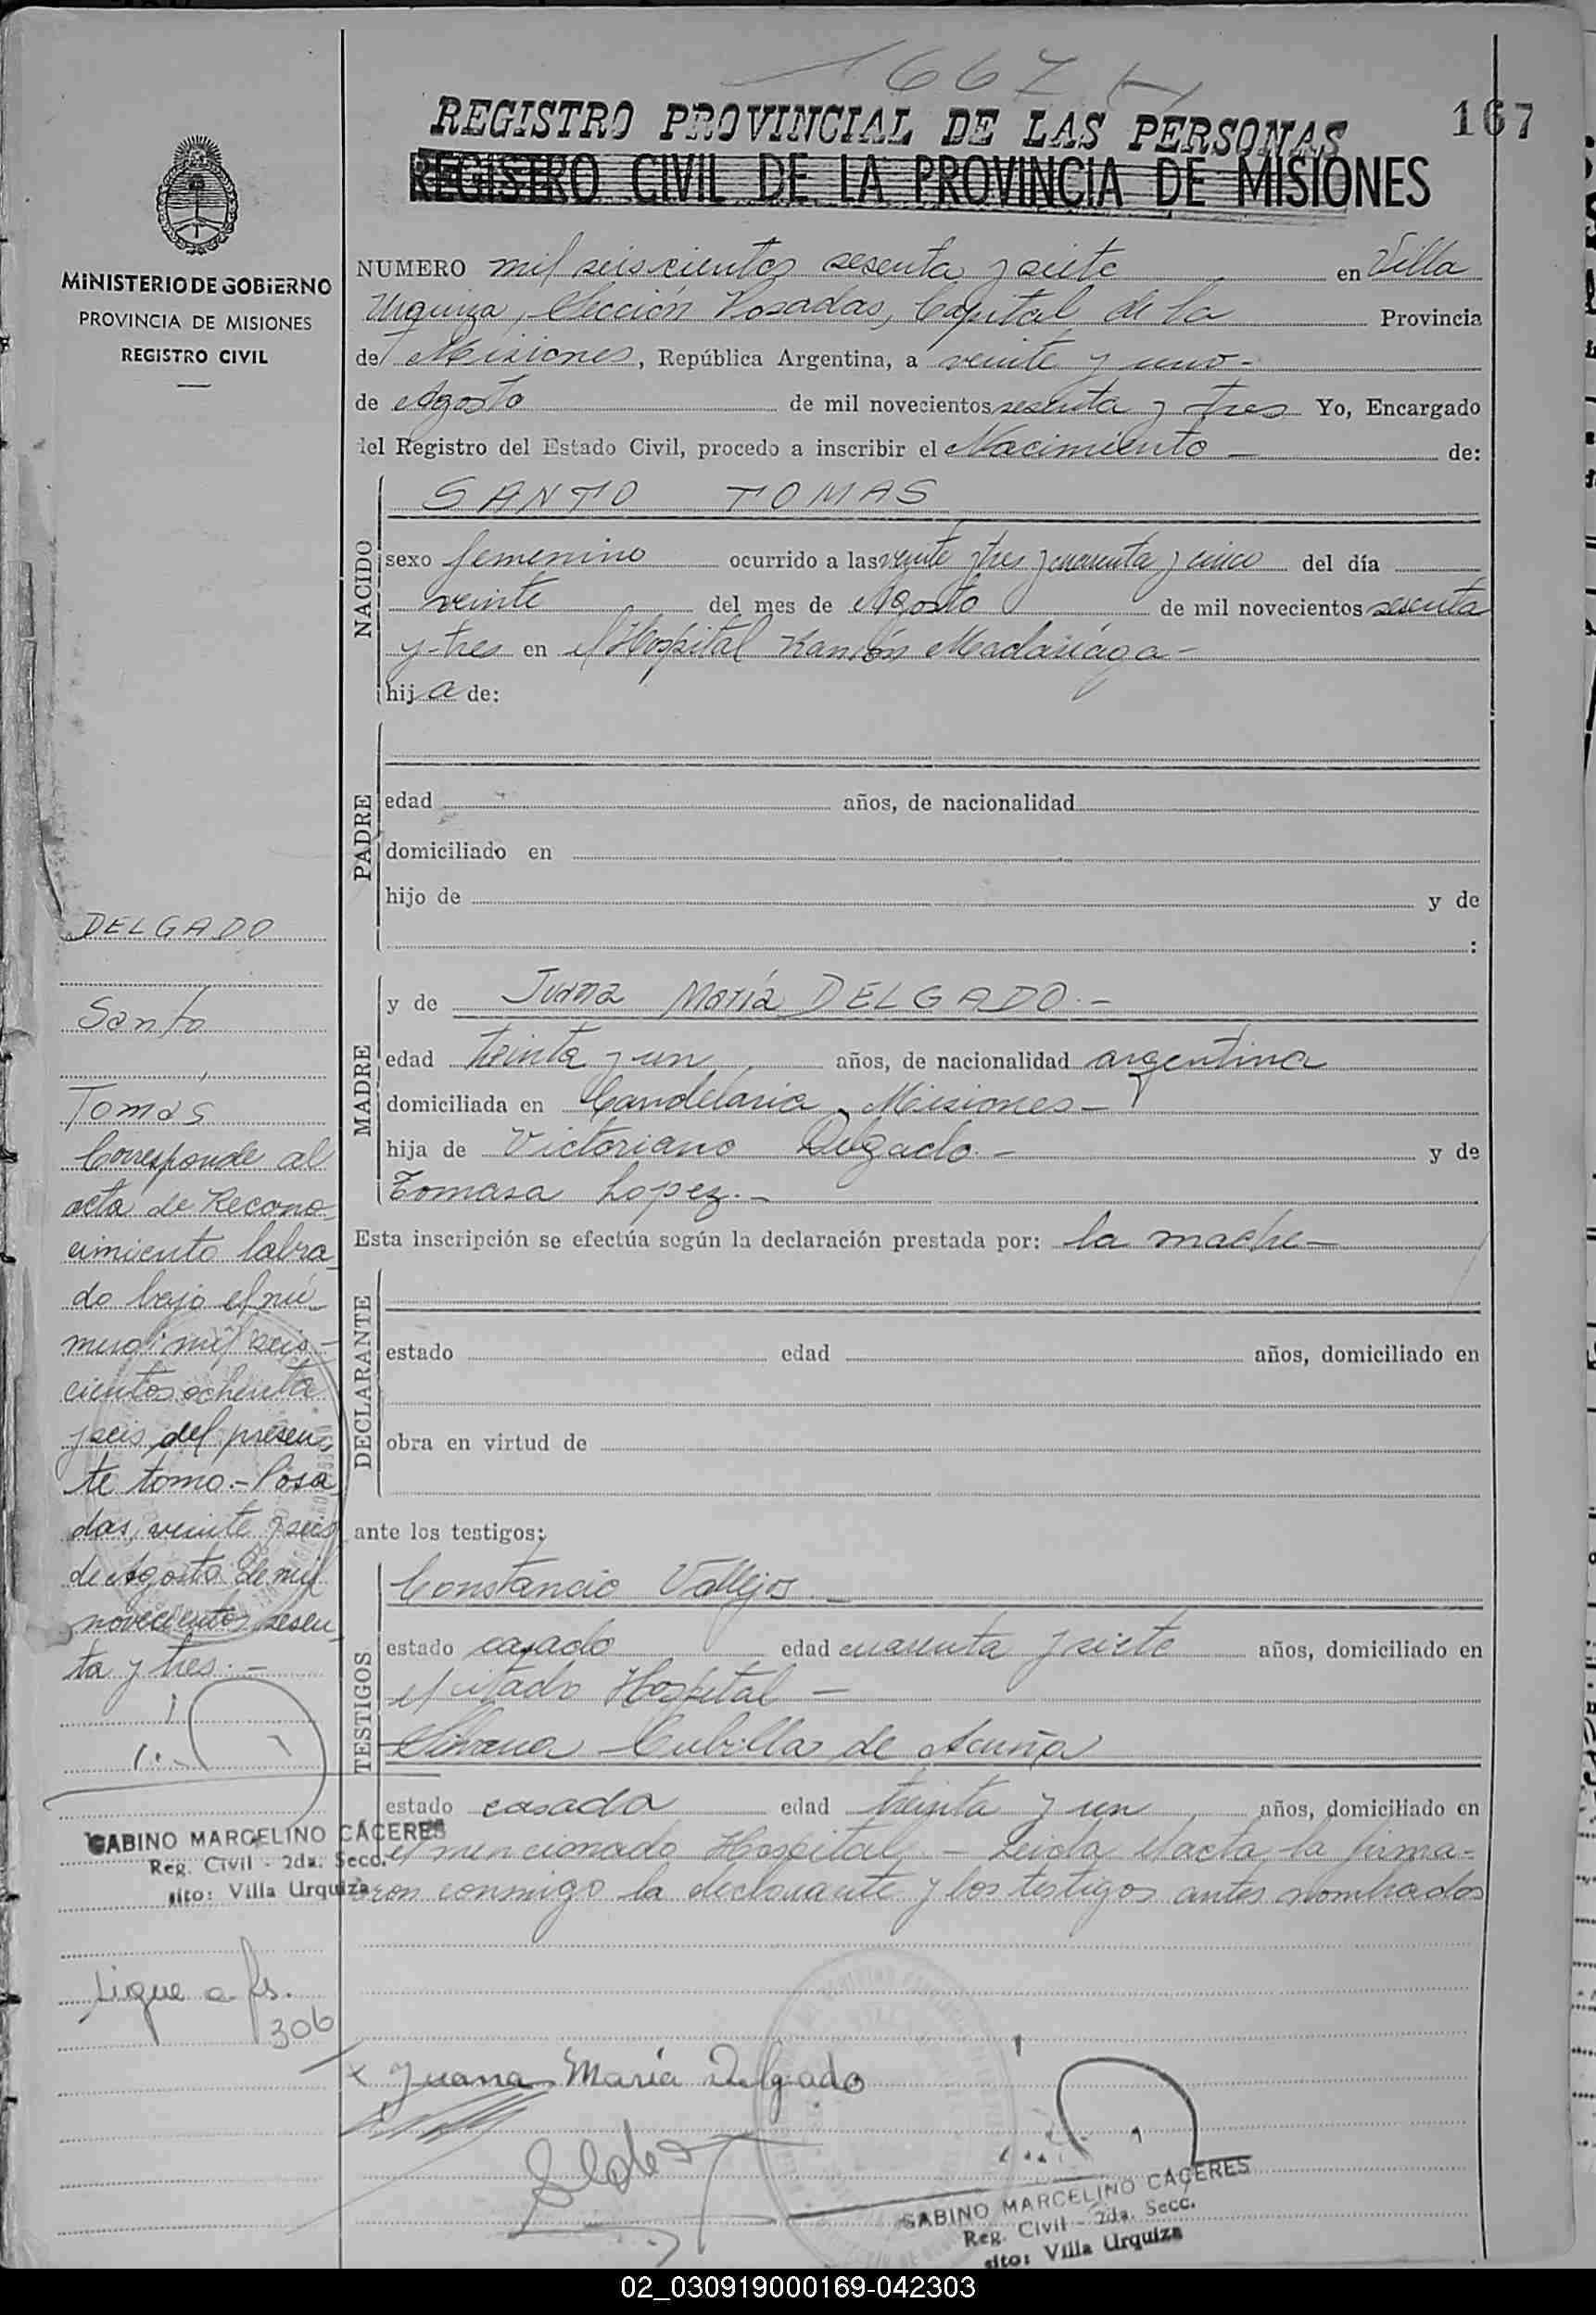 1667
167
REGISTRO PROVINCIAL DE LAS PERSONAS
REGISTRO CIVIL DE LA PROVINCIA DE MISIONES
MINISTERIO DE GOBIERNO
PROVINCIA DE MISIONES
REGISTRO CIVIL
NUMERO mil seiscientos sesenta y siete en Villa
Urquiza, Sección Posadas, Capital de la Provincia
de Misiones, República Argentina, a veinte y uno-
de Agosto de mil novecientos sesenta y tres Yo, Encargado
del Registro del Estado Civil, procedo a inscribir el Nacimiento - de:
NACIDO
SANTO TOMAS
sexo femenino ocurrido a las veinte y tres y cuarenta y cinco del día
veinte del mes de Agosto de mil novecientos sesenta
y tres en el Hospital Ramón Madariaga-
hija de:
PADRE
edad años, de nacionalidad
domiciliado en
hijo de y de
:
MADRE
y de Juana María DELGADO.-
edad treinta y un años, de nacionalidad argentina
domiciliada en Candelaria, Misiones-
hija de Victoriano Delgado.- y de
Tomasa Lopez.-
Esta inscripción se efectúa según la declaración prestada por: la madre-
DECLARANTE
estado edad años, domiciliado en
obra en virtud de
ante los testigos:
TESTIGOS
Constancio Vallejos.-
estado casado edad cuarenta y siete años, domiciliado en
el citado Hospital -
Cubilla de Acuña
estado casada edad treinta y un años, domiciliado en
el mencionado Hospital - Leida el acta, la firma-
ron conmigo la declarante y los testigos antes nombrados
DELGADO
Santo
Tomas
Corresponde al
acta de Recono-
cimiento labra-
do bajo el nú-
mero: mil seis-
cientos ochenta
y seis del presen-
te tomo.- Posa-
das, veinte y seis
de Agosto de mil
novecientos sesen-
ta y tres.-
GABINO MARCELINO CÁCERES
Reg. Civil - 2da. Secc.
sito: Villa Urquiza
Sigue a fs.
306
x Juana María Delgado
GABINO MARCELINO CÁCERES
Reg. Civil - 2da. Secc.
sito: Villa Urquiza
02_030919000169-042303